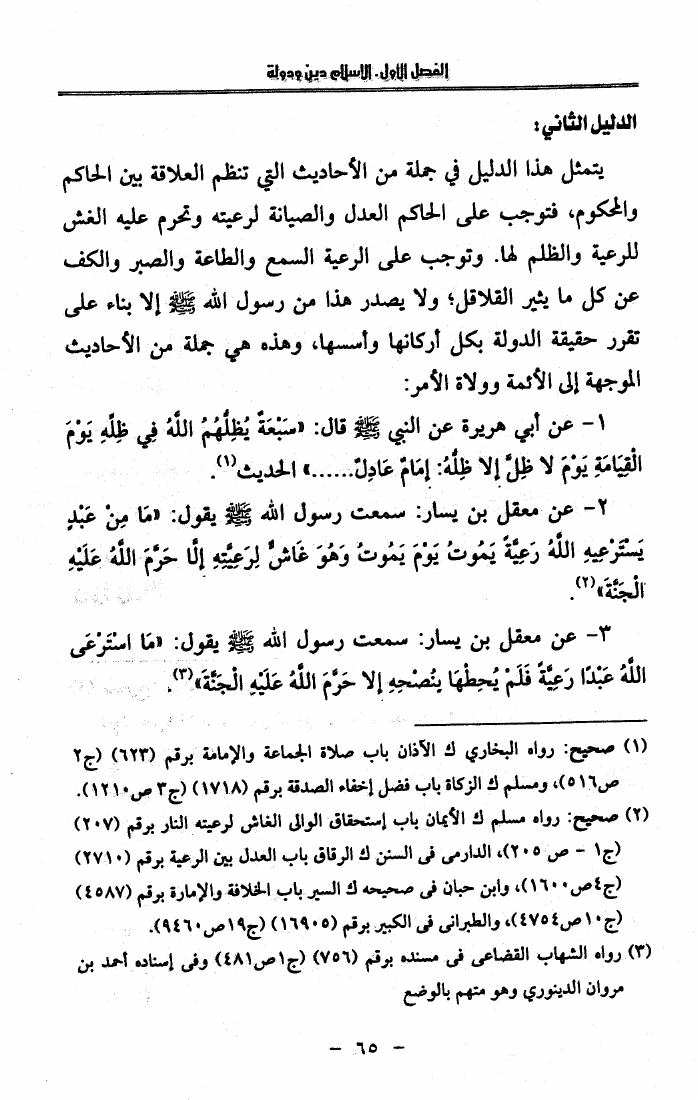 الفصل الأول. الإسلام دين ودولة
الدليل الثاني:
يتمثل هذا الدليل في جملة من الأحاديث التي تنظم العلاقة بين الحاكم
والمحكوم، فتوجب على الحاكم العدل والصيانة لرعيته وتحرم عليه الغش
للرعية والظلم لها. وتوجب على الرعية السمع والطاعة والصبر والكف
عن كل ما يثير القلاقل؛ ولا يصدر هذا من رسول الله ﷺ إلا بناء على
تقرر حقيقة الدولة بكل أركانها وأسسها، وهذه هي جملة من الأحاديث
الموجهة إلى الأئمة وولاة الأمر:
١- عن أبي هريرة عن النبي ﷺ قال: «سَبْعَةٌ يُظِلُّهُمُ اللَّهُ فِي ظِلِّهِ يَوْمَ
الْقِيَامَةِ يَوْمَ لَا ظِلَّ إِلا ظِلُّهُ: إِمَامٌ عَادِلٌ......» الحديث(١).
٢- عن معقل بن يسار: سمعت رسول الله ﷺ يقول: «مَا مِنْ عَبْدٍ
يَسْتَرْعِيهِ اللَّهُ رَعِيَّةً يَمُوتُ يَوْمَ يَمُوتُ وَهُوَ غَاشٌّ لِرَعِيَّتِهِ إِلَّا حَرَّمَ اللَّهُ عَلَيْهِ
الْجَنَّةَ»(٢).
٣- عن معقل بن يسار: سمعت رسول الله ﷺ يقول: «مَا اسْتَرْعَى
اللَّهُ عَبْدًا رَعِيَّةً فَلَمْ يُحِطْهَا بِنُصْحِهِ إِلا حَرَّمَ اللَّهُ عَلَيْهِ الْجَنَّةَ»(٣).
(١) صحيح: رواه البخاري ك الآذان باب صلاة الجماعة والإمامة برقم (٦٢٣) (ج٢
ص٥١٦)، ومسلم ك الزكاة باب فضل إخفاء الصدقة برقم (١٧١٨) (ج٣ ص١٢١٠).
(٢) صحيح: رواه مسلم ك الأيمان باب إستحقاق الوالى الغاش لرعيته النار برقم (٢٠٧)
(ج١ - ص ٢٠٥)، الدارمى فى السنن ك الرقاق باب العدل بين الرعية برقم (٢٧١٠)
(ج٤ص١٦٠٠)، وابن حبان فى صحيحه ك السير باب الخلافة والإمارة برقم (٤٥٨٧)
(ج١٠ص٤٧٥٤)، والطبرانى فى الكبير برقم (١٦٩٠٥) (ج١٩ص٩٤٦٠).
(٣) رواه الشهاب القضاعى فى مسنده برقم (٧٥٦) (ج١ص٤٨١) وفى إسناده أحمد بن
مروان الدينوري وهو متهم بالوضع
- ٦٥ -